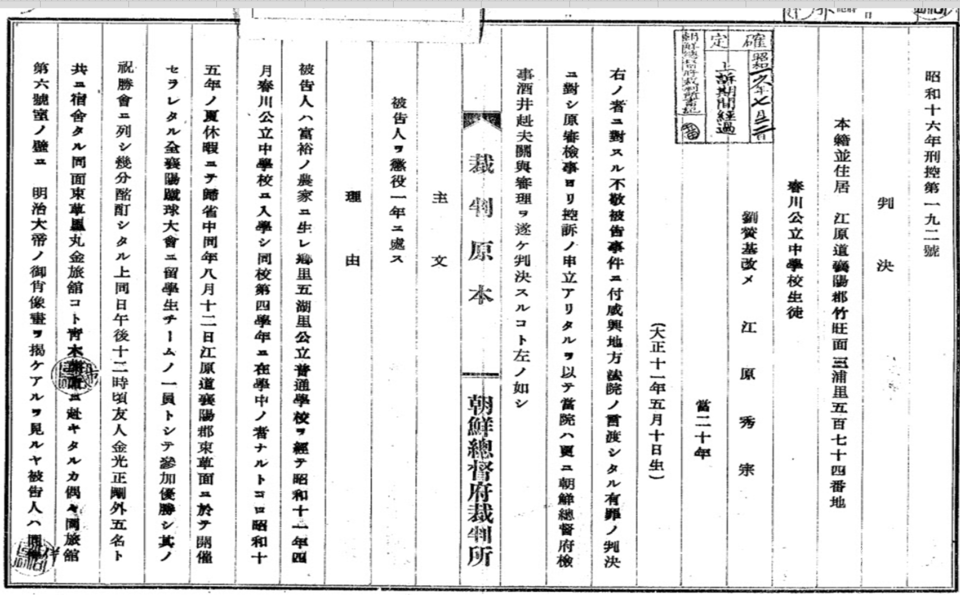 昭和十六年刑控第一九二號
判決
本籍並住居 江原道襄陽郡竹旺面三浦里五百七十四番地
春川公立中學校生徒
劉賛基改メ 江原秀宗
當二十年
(大正十一年五月十日生)
確定
上訴期間經過
右ノ者ニ對スル不敬被吿事件ニ付咸興地方法院ノ言渡シタル有罪ノ判決
ニ對シ原審檢事ヨリ控訴ノ申立アリタルヲ以テ當院ハ更ニ朝鮮總督府檢
事酒井赳夫關與審理ヲ遂ケ判決スルコト左ノ如シ
裁判原本
朝鮮總督府裁判所
主文
被吿人ヲ懲役一年ニ處ス
理由
被吿人ハ富裕ノ農家ニ生レ鄕里五湖里公立普通學校ヲ經テ昭和十一年四
月春川公立中學校ニ入學シ同校第四學年ニ在學中ノ者ナルトコロ昭和十
五年ノ夏休暇ニテ歸省中同年八月十二日江原道襄陽郡束草面ニ於テ開催
セラレタル全襄陽蹴球大會ニ留學生チームノ一員トシテ參加優勝シ其ノ
祝勝會ニ列シ幾分酩酊シタル上同日午後十二時頃友人金光正剛外五名ト
共ニ宿舍タル同面束草里丸金旅館コト靑木ニ赴キタルカ偶々同旅館
第六號室ノ壁ニ 明治大帝ノ御肖像畫ヲ揭ケアルヲ見ルヤ被吿人ハ